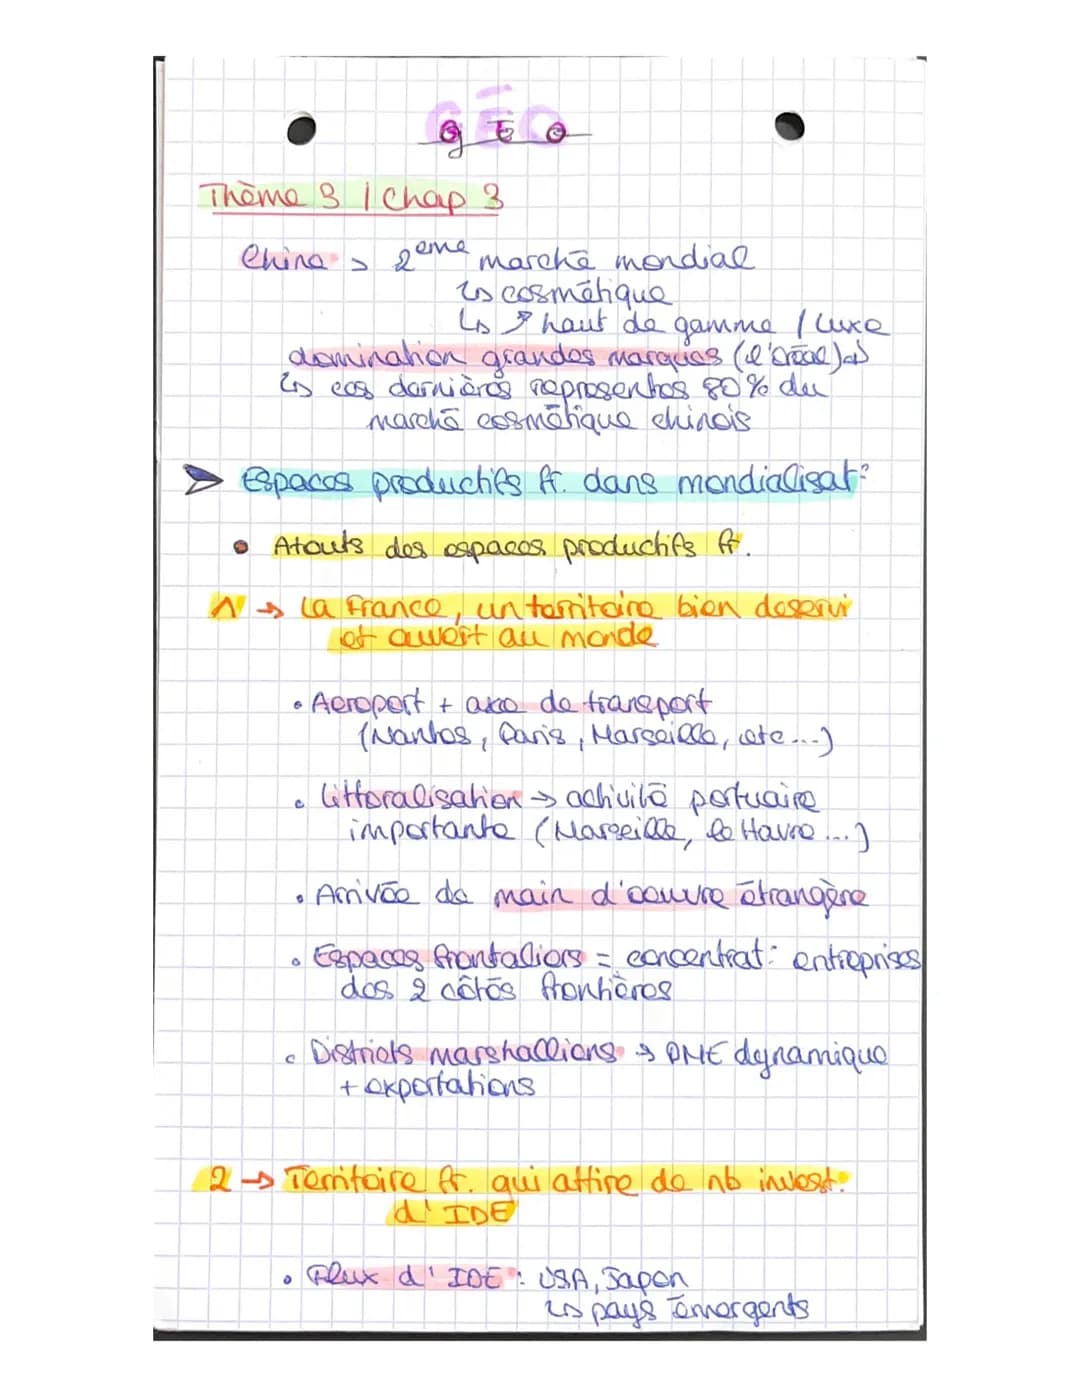 GÉO
Thème 3 | Chap 3
Chine > 2eme marché mondial
↳ cosmétique
↳ ↗ haut de gamme / luxe
domination grandes marques (l'oréal)
↳ ces dernières représentes 80% du
marché cosmétique chinois
➤ Espaces productifs fr. dans mondialisat°
• Atouts des espaces productifs fr.
1 → La France, un territoire bien deservi
et ouvert au monde
• Aeroport + axe de transport
(Nantes, Paris, Marseille, etc...)
• Littoralisation → activité portuaire
importante (Marseille, le Havre...)
• Arrivée de main d'oeuvre étrangère
• Espaces frontaliers = concentrat° entreprises
des 2 côtés frontières
• Districts marshalliens → PME dynamique
+ exportations
2 → Territoire fr. qui attire de nb invest.
d'IDE
• Flux d'IDE : USA, Japon
↳ pays émergents